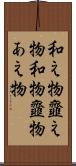 和え物韲え
物和物韲物
あえ物